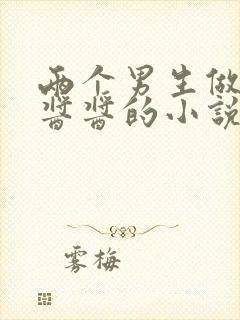 两个男生做
酱酱的小説
雾梅